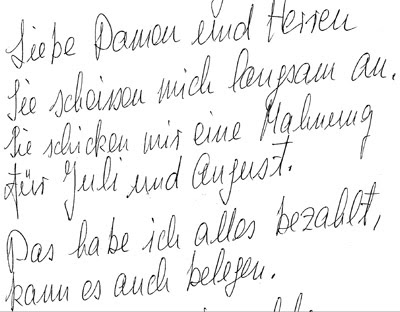 Liebe Damen und Herren
Sie scheissen mich langsam an.
Sie schicken mir eine Mahnung
für Juli und August.
Das habe ich alles bezahlt,
kann es auch belegen.